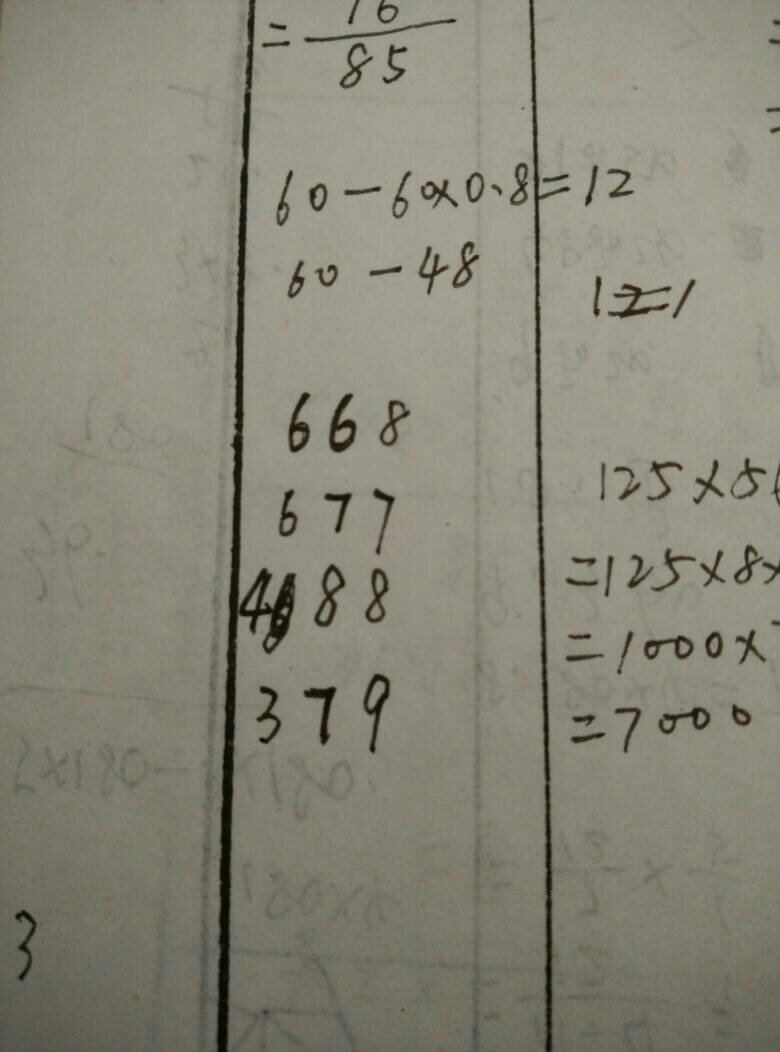 = 16/85
60-60×0.8=12
60-48
12=1
668
677
488
379
125×5
=125×8×
=1000×
=7000
3